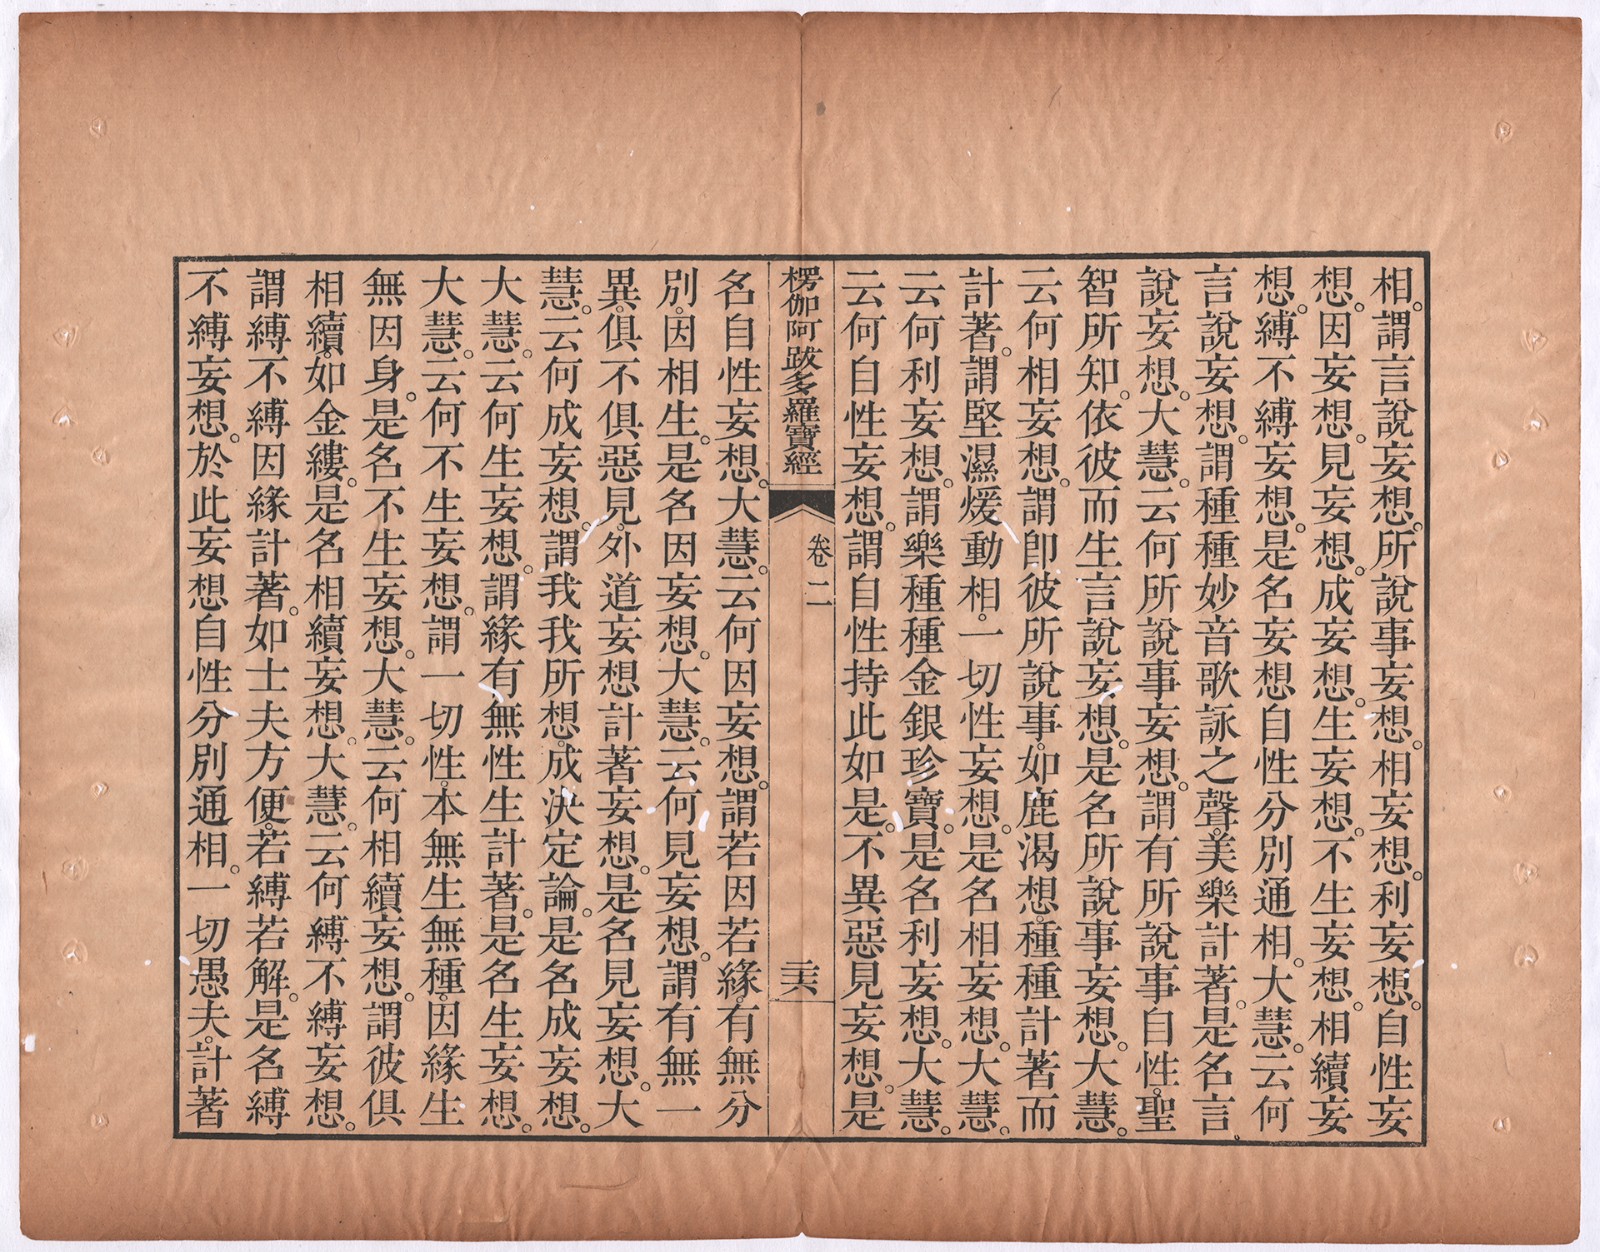 相。謂言說妄想。所說事妄想。相妄想。利妄想。自性妄
想。因妄想。見妄想。成妄想。生妄想。不生妄想。相續妄
想。縛不縛妄想。是名妄想自性分別通相。大慧。云何
言說妄想。謂種種妙音歌詠之聲。美樂計著。是名言
說妄想。大慧。云何所說事妄想。謂有所說事自性。聖
智所知。依彼而生言說妄想。是名所說事妄想。大慧。
云何相妄想。謂卽彼所說事。如鹿渴想。種種計著而
計著。謂堅濕煖動相。一切性妄想。是名相妄想。大慧。
云何利妄想。謂樂種種金銀珍寶。是名利妄想。大慧。
云何自性妄想。謂自性持此如是。不異惡見妄想。是
楞伽阿跋多羅寶經
卷二
二十六
名自性妄想。大慧。云何因妄想。謂若因若緣。有無分
別。因相生。是名因妄想。大慧。云何見妄想。謂有無一
異。俱不俱惡見。外道妄想計著妄想。是名見妄想。大
慧。云何成妄想。謂我我所想。成決定論。是名成妄想。
大慧。云何生妄想。謂緣有無性生計著。是名生妄想。
大慧。云何不生妄想。謂一切性。本無生無種。因緣生
無因身。是名不生妄想。大慧。云何相續妄想。謂彼俱
相續。如金縷。是名相續妄想。大慧。云何縛不縛妄想。
謂縛不縛因緣計著。如士夫方便。若縛若解。是名縛
不縛妄想。於此妄想自性分別通相。一切愚夫。計著